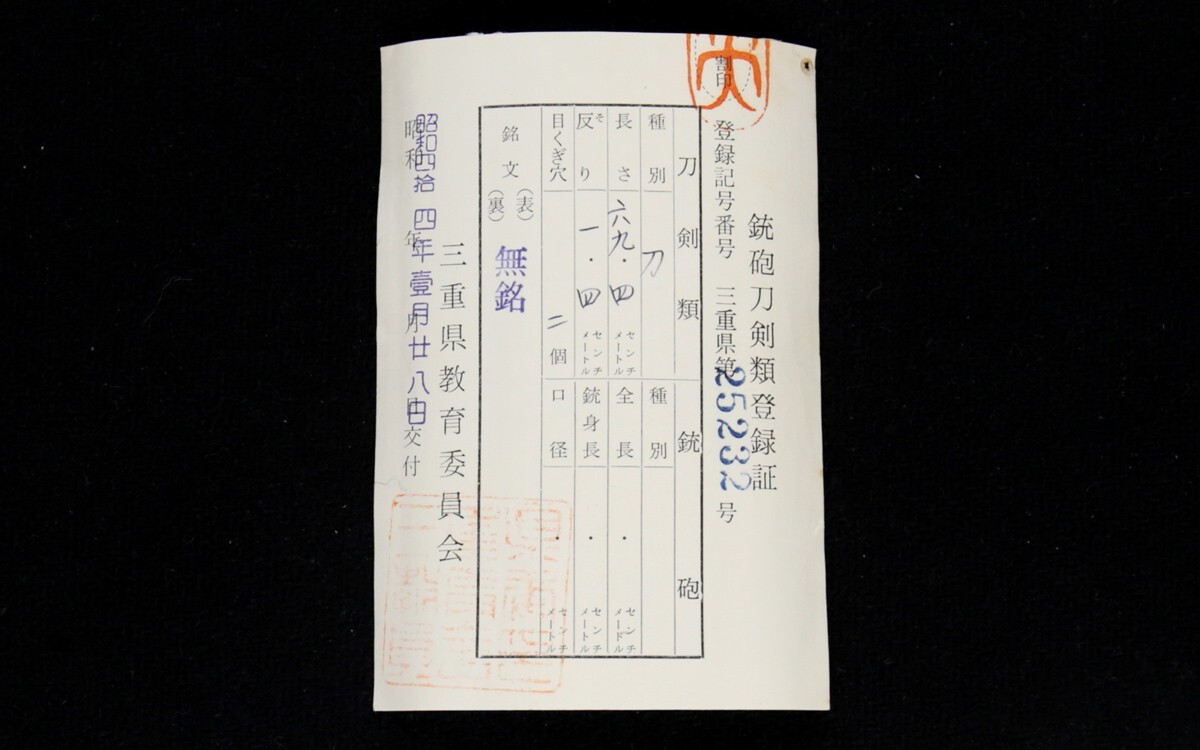 割印
銃砲刀剣類登録証
登録記号番号 三重県第25232号
刀剣類
種別 刀
長さ 六九・四 センチメートル
反り そ 一・四 センチメートル
目くぎ穴 二個
銘文 (表) (裏) 無銘
銃砲
種別
全長 ・ センチメートル
銃身長 ・ センチメートル
口径 ・ センチメートル
三重県教育委員会
昭和 年 月 日交付
昭和四拾四年壹月廿八日